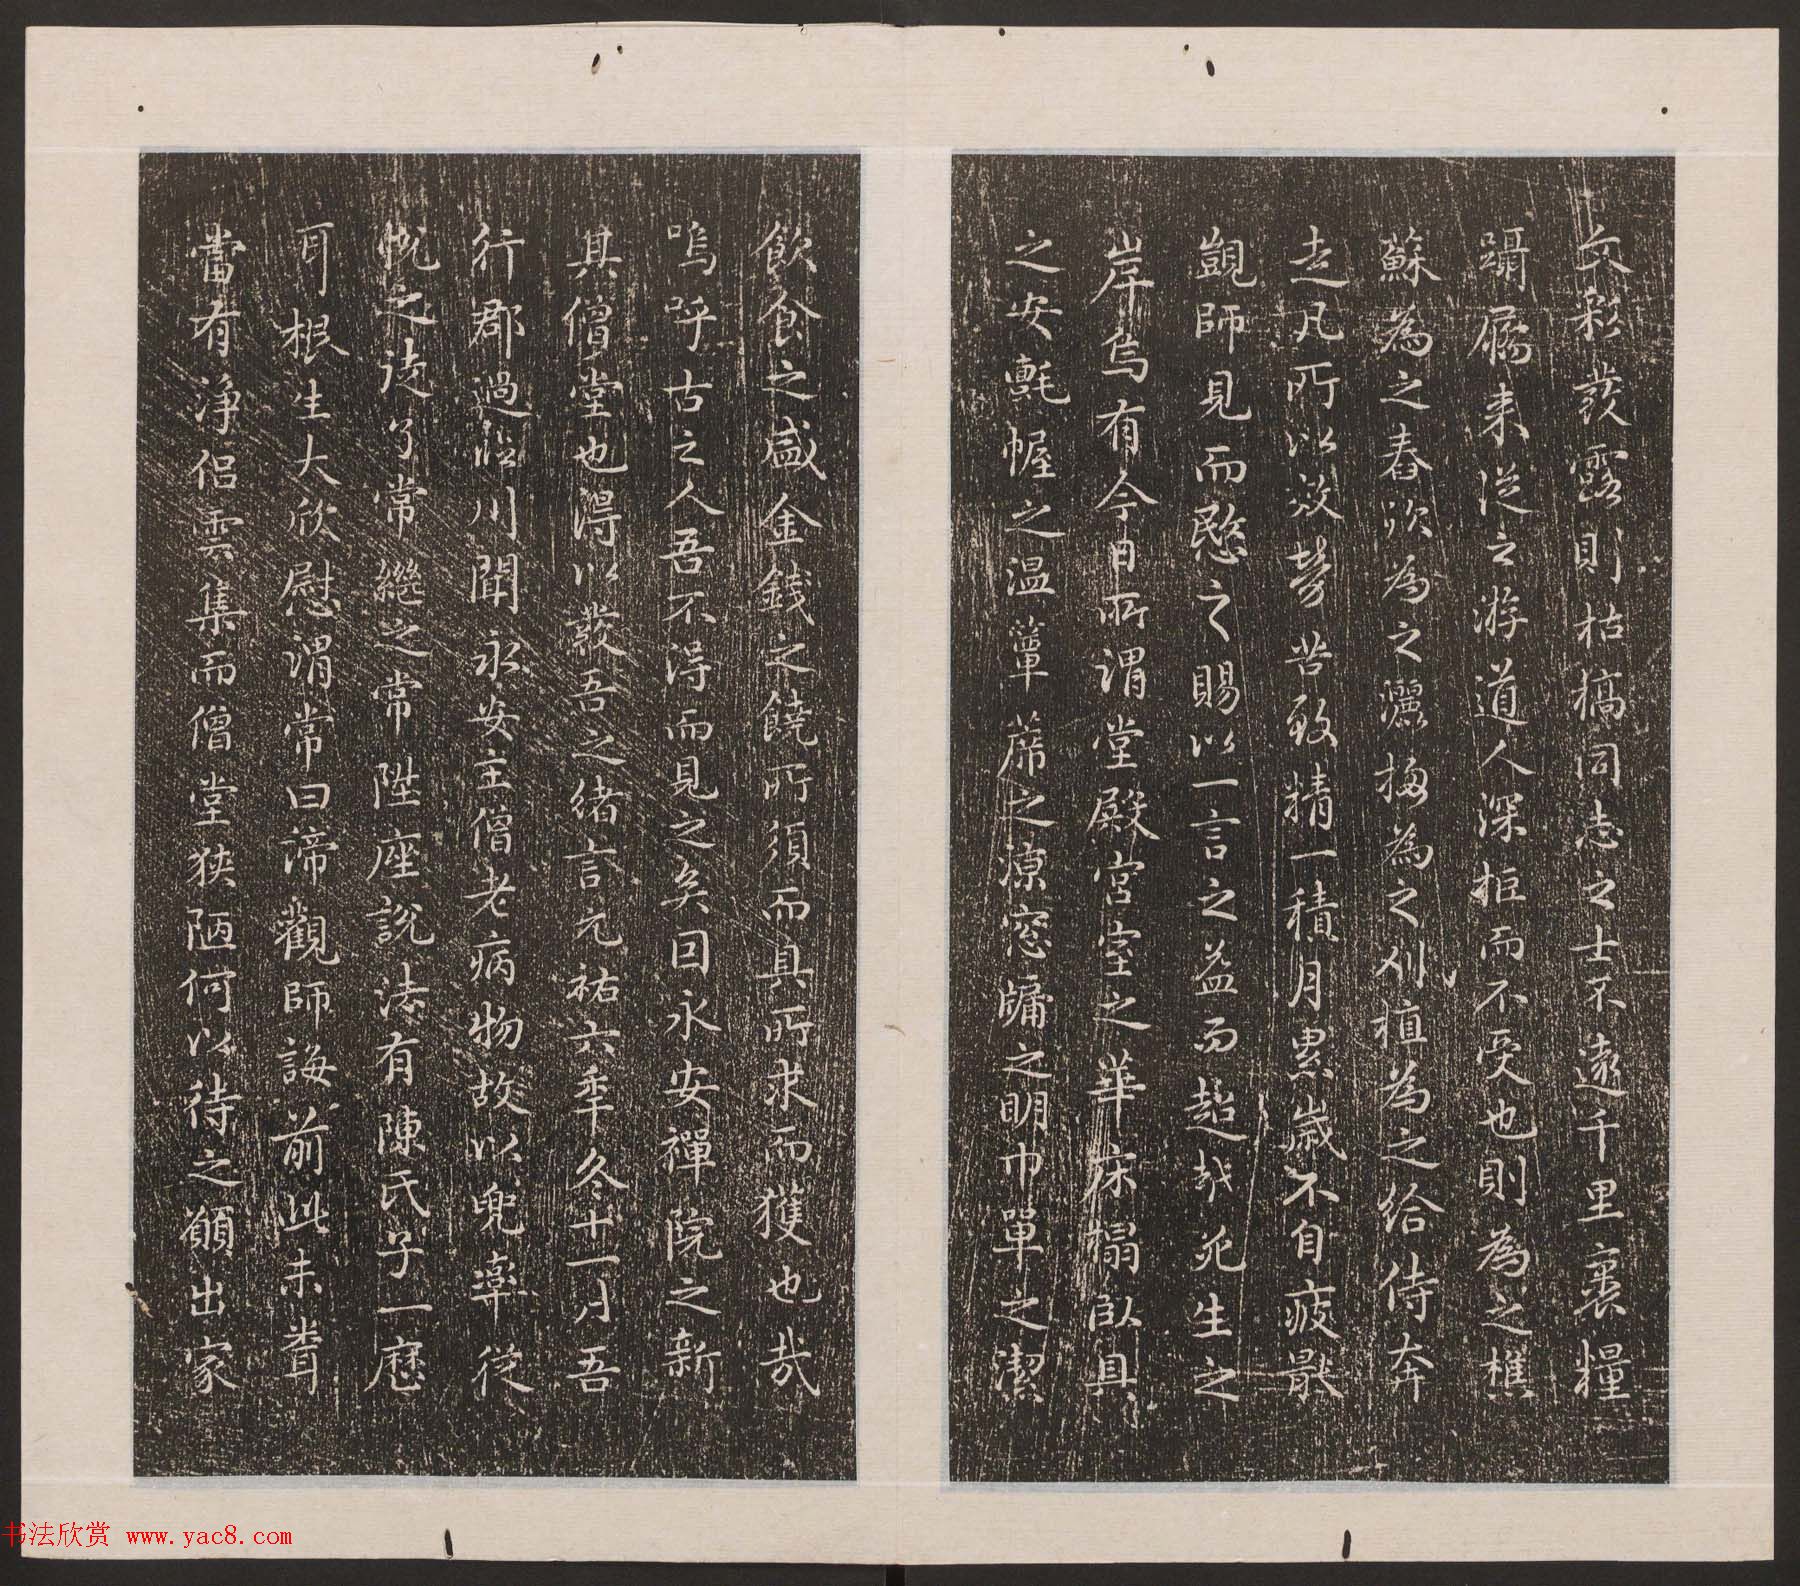 文彩發露則枯槁同志之士不遠千里裹糧
躡屩来從之游道人深拒而不受也則為之樵
蘇為之舂炊為之灑掃為之刈植為之給侍奔
走凡所以效勞苦致精一積月累歲不自疲厭
覬師見而愍之賜以一言之益而超越死生之
岸烏有今日所謂堂殿宮室之華床榻臥具
之安氈幄之温簟蓆之涼窓牖之明巾單之潔
飲食之盛金錢之饒所須而具所求而獲也哉
嗚呼古之人吾不得而見之矣因永安禪院之新
其僧堂也得以發吾之緒言元祐六年冬十一月吾
行郡過臨川聞永安主僧老病物故以兜率從
悅之徒了常繼之常陞座說法有陳氏子一歷
耳根生大欣慰謂常曰諦觀師誨前此未聞
當有淨侣雲集而僧堂狹陋何以待之願出家
书法欣赏 www.yac8.com